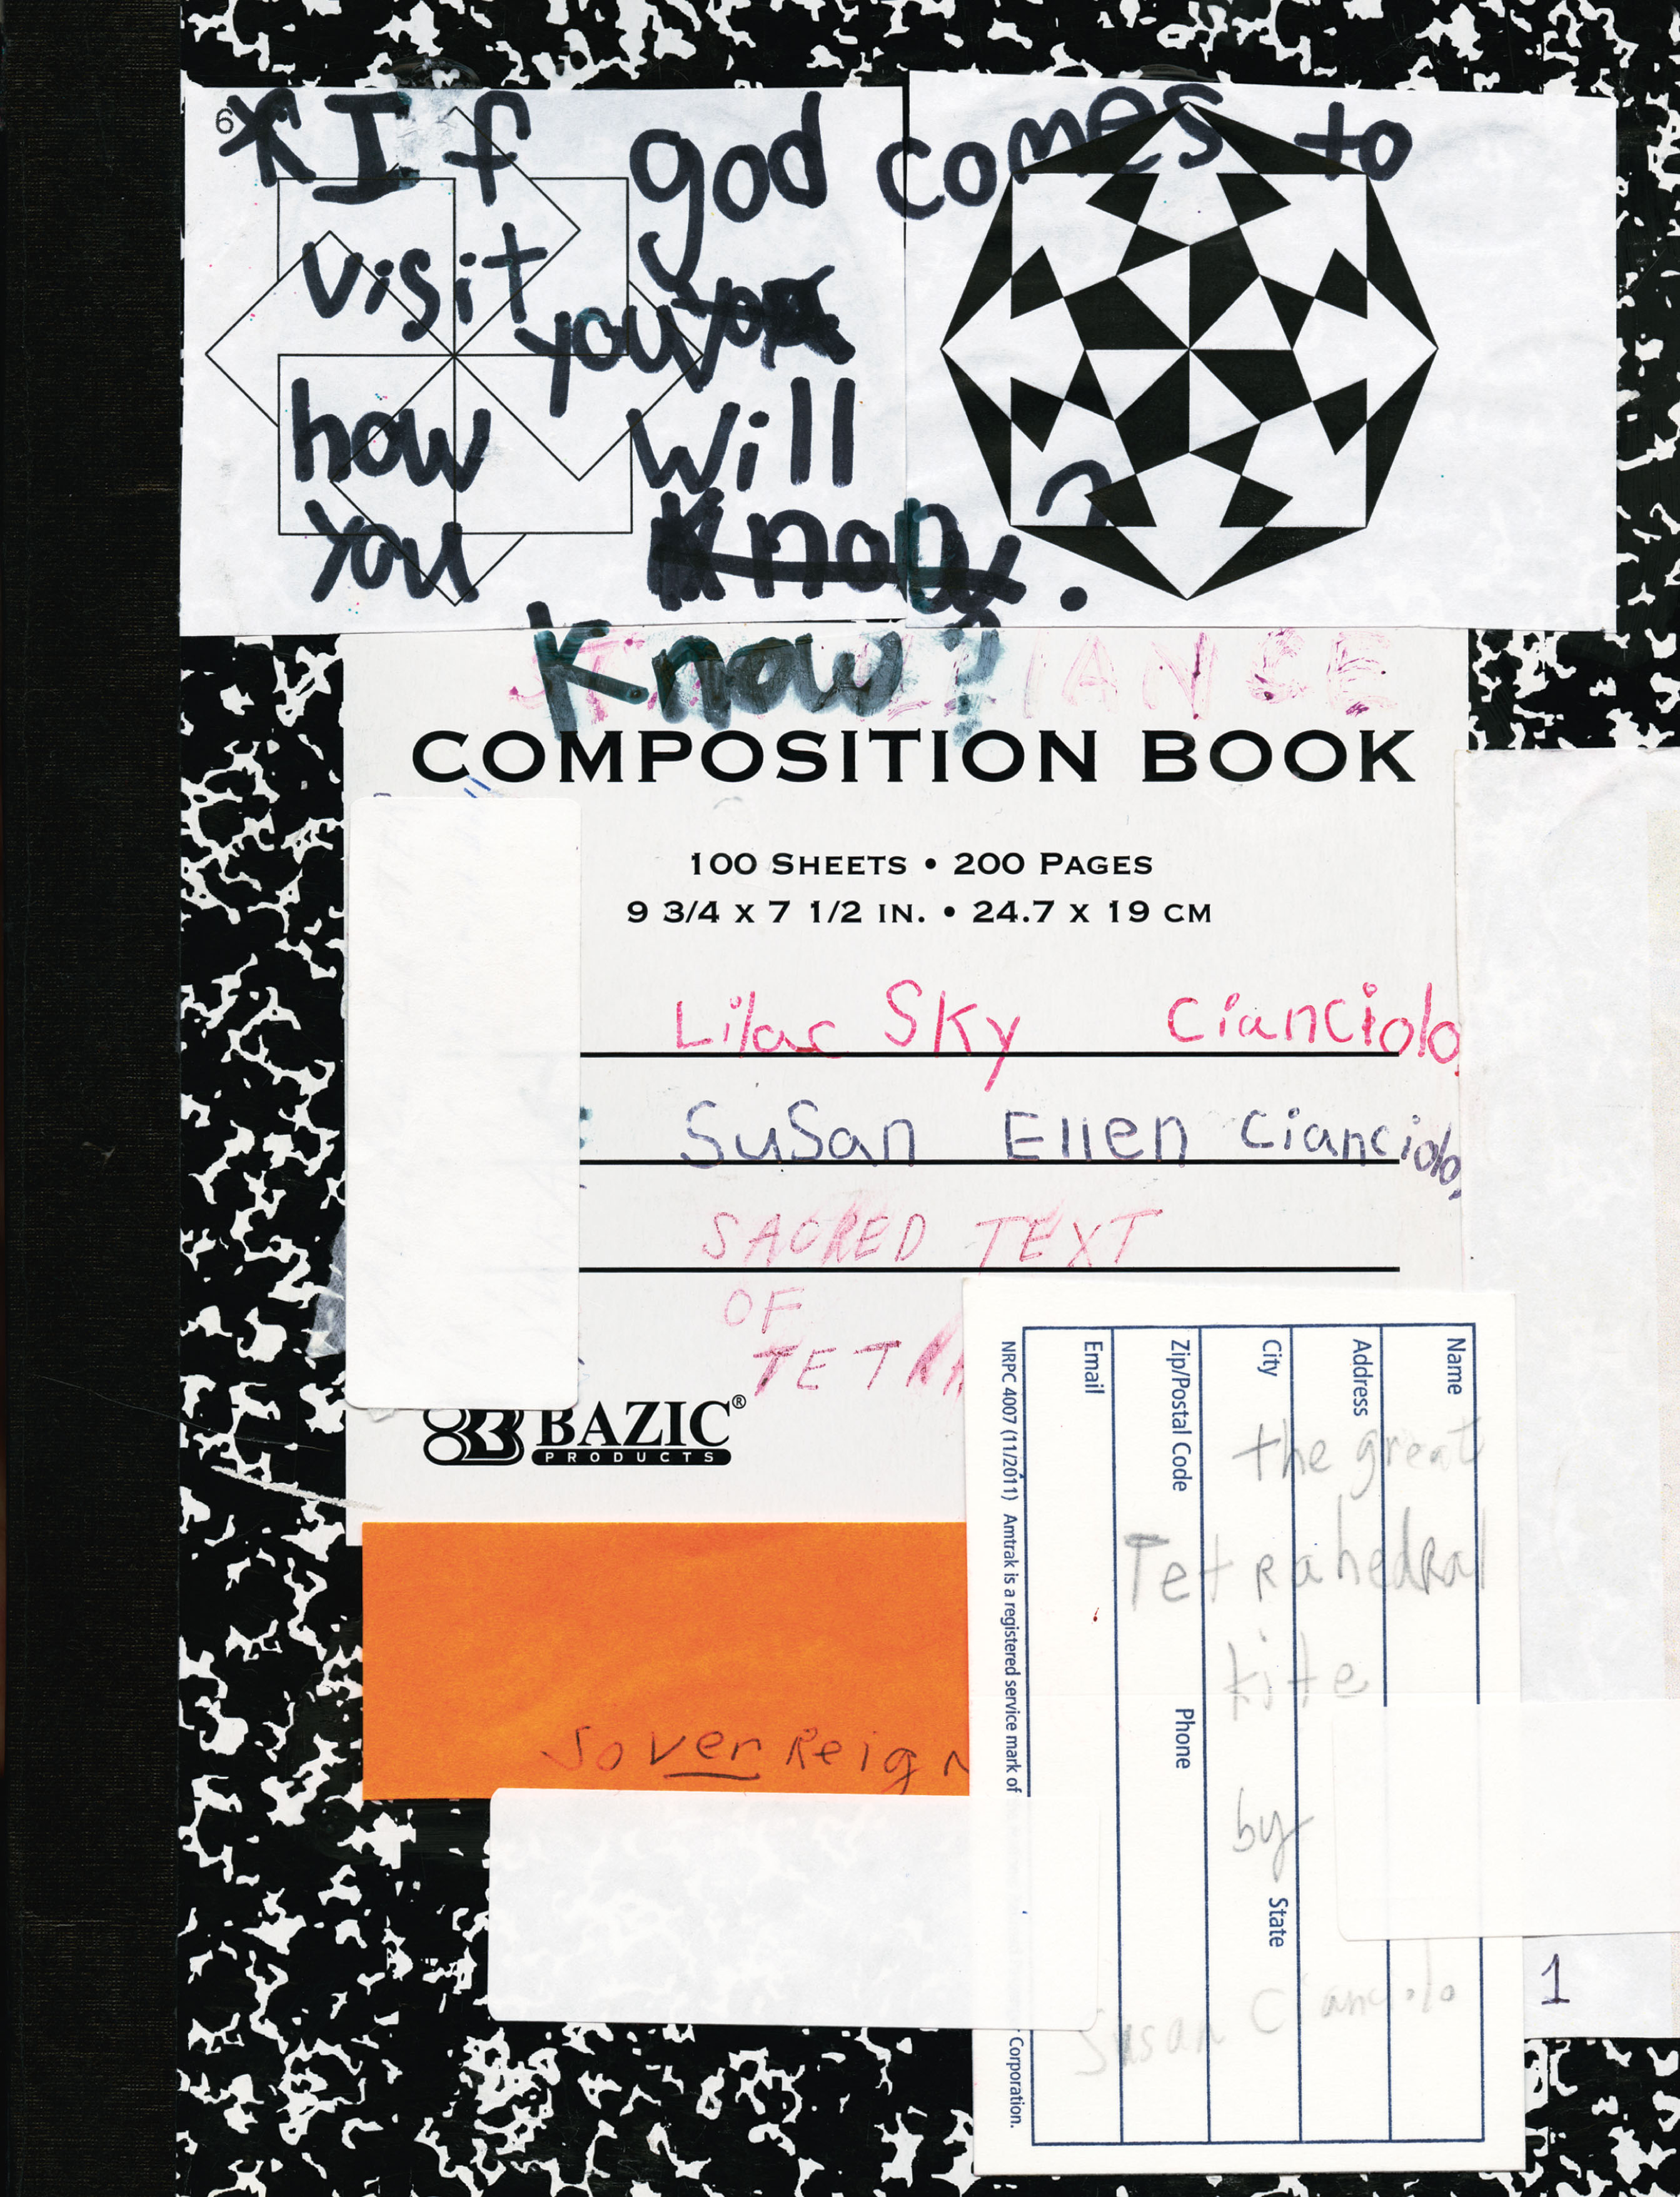 6
* If god comes to
visit you you
how will
you know ?
Know?
COMPOSITION BOOK
100 SHEETS • 200 PAGES
9 3/4 X 7 1/2 IN. • 24.7 X 19 CM
Lilac Sky Cianciolo,
SuSan Ellen Cianciolo,
SACRED TEXT
OF
TETRA
BAZIC®
PRODUCTS
Soverreign
Name
Address
City
State
Zip/Postal Code
Phone
Email
NRPC 4007 (11/2011) Amtrak is a registered service mark of
Corporation.
the great
Tetrahedral
kite
by
Susan Cianciolo
1